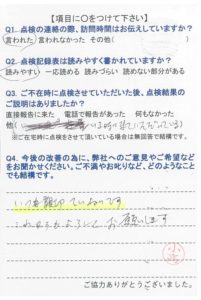 【項目に○をつけて下さい】
Q1. 点検の連絡の際、訪問時間はお伝えしていますか？
言われた 言われなかった その他（ ）
Q2. 点検記録表は読みやすく書かれていますか？
読みやすい 一応読める 読みづらい 読めない部分がある
Q3. ご不在時に点検させていただいた後、点検結果の
ご説明はありましたか？
直接家に来た 電話で報告があった 何もなかった
他（
※ご在宅時に点検をさせて頂いている場合は無回答で結構です。
Q4. 今後の改善の為に、弊社へのご意見やご希望など
をお聞かせください。ご不満やお叱りなど、どのようなこと
でも結構です。
いつも親切
お願いします
ご協力ありがとうございました。